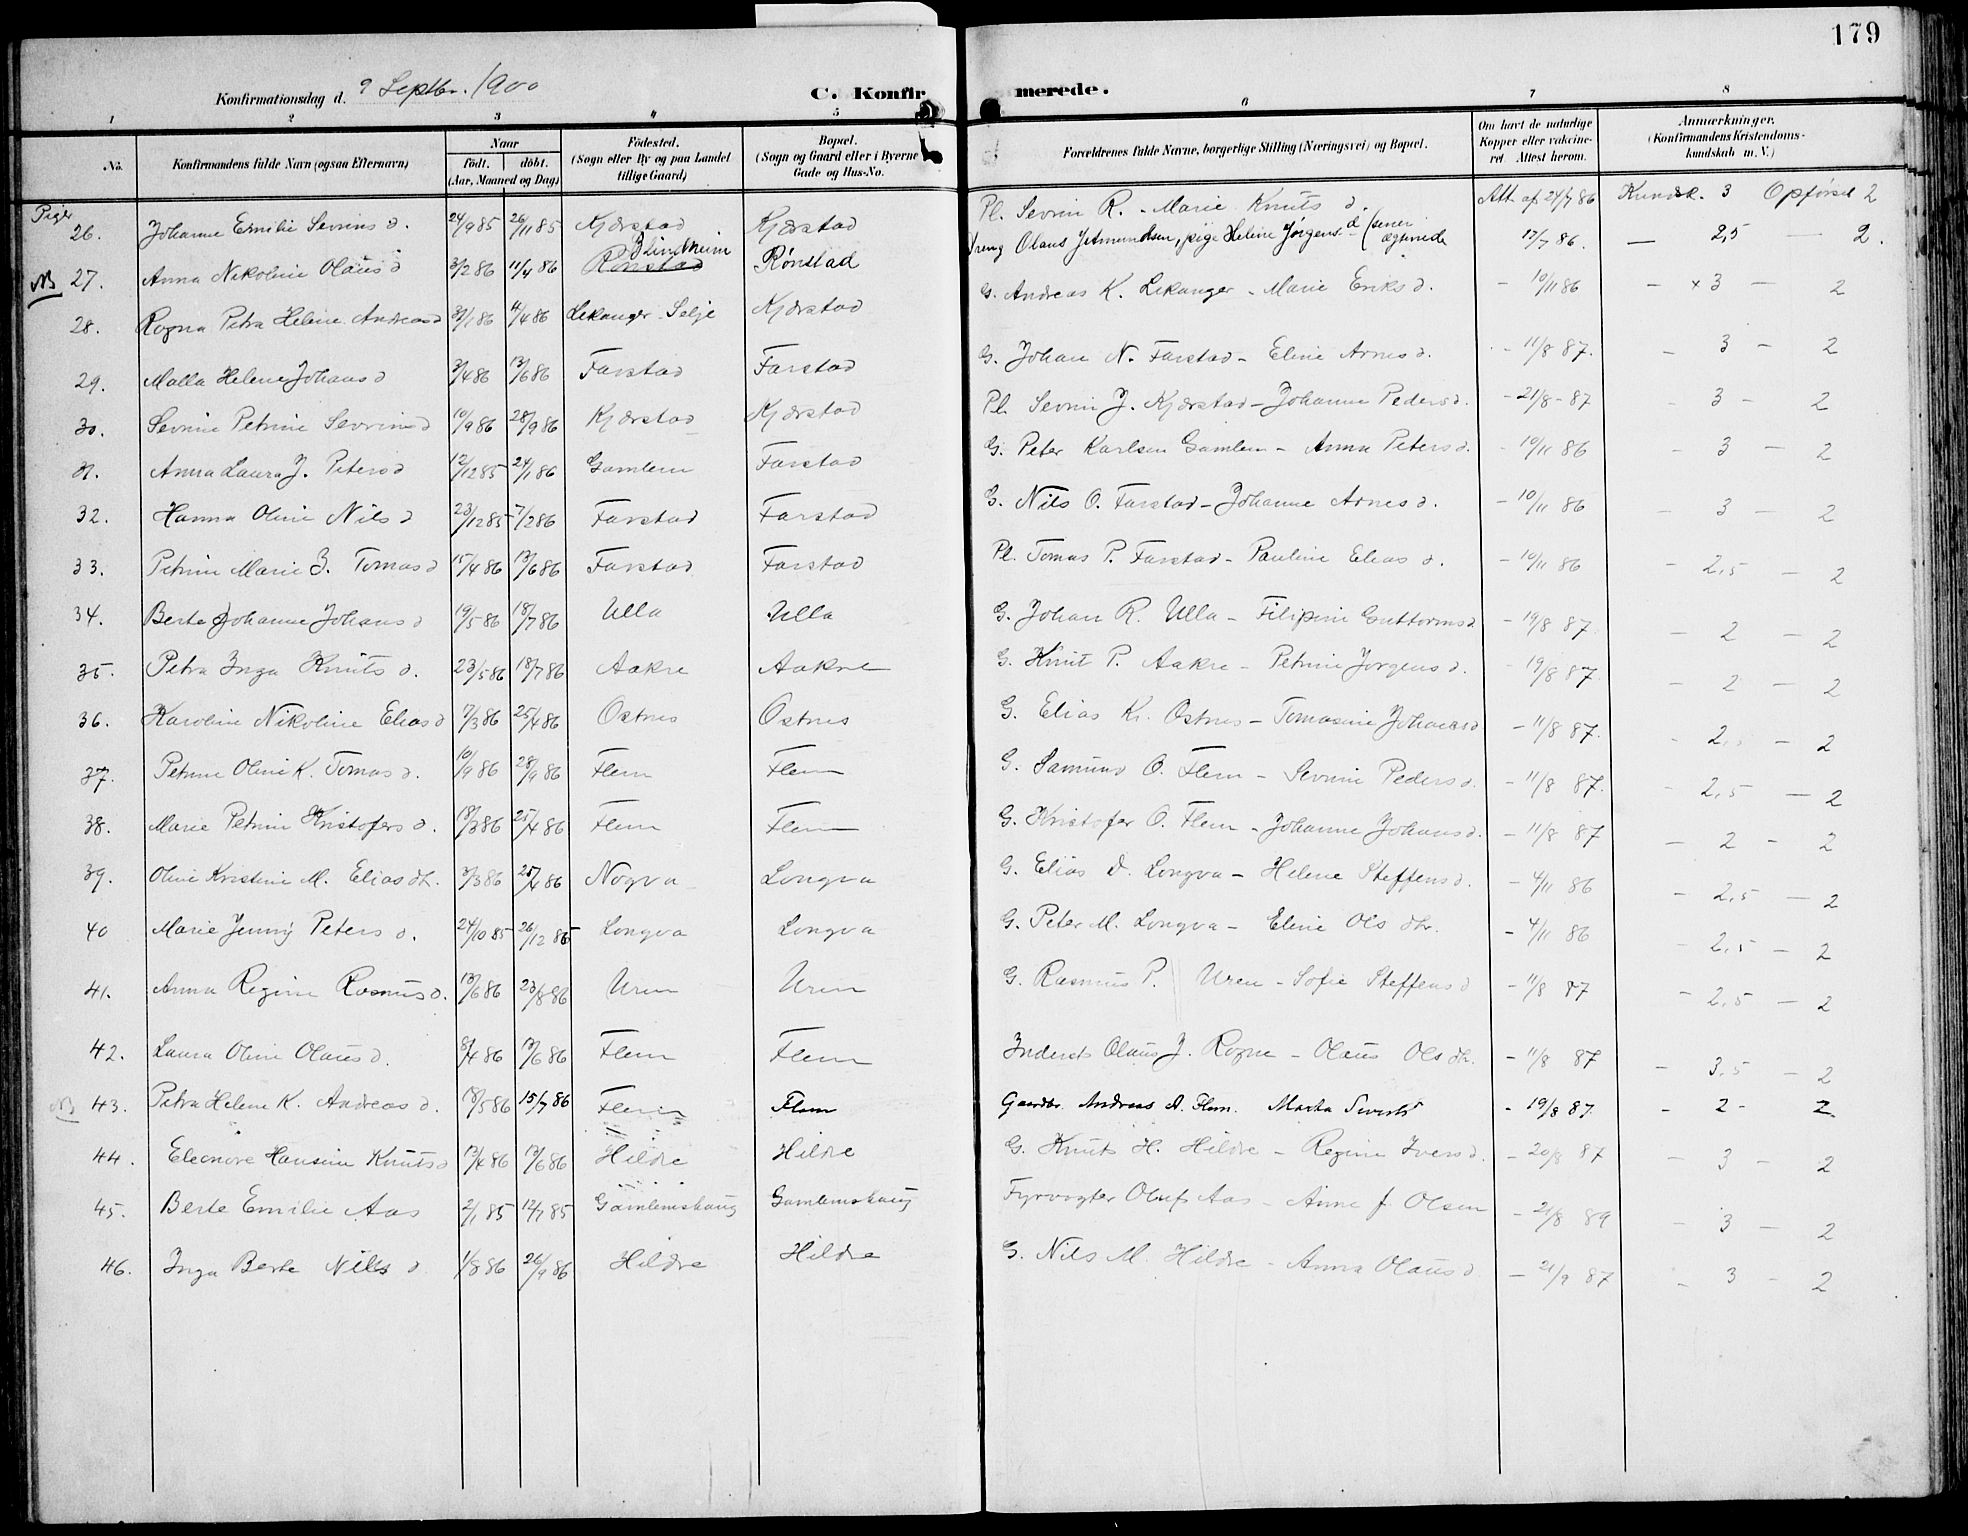 179
Konfirmationsdag d. 9 Septbr. 1900
C. Konfirmerede.
1 2 3 4 5 6 7 8
No. Konfirmandens fulde Navn (ogsaa Efternavn) Naar født. døbt. (Aar, Maaned og Dag) Fødested. (Sogn eller By og paa Landet tillige Gaard) Bopæl. (Sogn og Gaard eller i Byerne Gade og Hus-No. Forældrenes fulde Navne, borgerlige Stilling (Næringsvei) og Bopæl. Om havt de naturlige Kopper eller vakcineret. Attest herom. Anmærkninger. (Konfirmandens Kristendomskundskab m. V.)
Piger
26. Johanne Emilie Sevrins d. 24/9 85 26/11 85 Kjærstad Kjærstad Pl. Sevrin R. - Marie Knuts d. Att. af 24/7 86 Kundsk. 3 Opførsel 2
NB 27. Anna Nikoline Olaus d 3/2 86 11/4 86 Rønstad Blindheim Rønstad Dreng Olaus Jetmundsen, pige Heline Jørgens d (senere ægteviede 17/7 86. — 2,5 — 2.
28. Rogna Petra Heline Andreas d 31/1 86 11/4 86 Lekanger Selje Kjærstad G. Andreas K. Lekanger - Marie Eriks d. - 10/11 86 - x 3 — 2
29. Malla Helene Johans d 3/4 86 13/6 86 Farstad Farstad G. Johan N. Farstad - Eline Arnes d. - 11/8 87. - 3 - 2
30. Sevrine Petrine Sevrins d 10/9 86 28/9 86 Kjærstad Kjærstad Pl. Sevrin J. Kjærstad - Johanne Peders d. - 21/8 - 87 - 3 - 2
31. Anna Laura J. Peters d 12/12 85 24/1 86 Gamlem Farstad G. Peter Karlsen Gamlem - Anna Peters d. - 10/11 86 - 3 - 2
32. Hanna Oline Nils d 23/12 85 7/2 86 Farstad Farstad G. Nils O. Farstad - Johanne Arnes d. - 10/11 86 - 3 - 2
33. Petrine Marie B. Tomas d 15/4 86 13/6 86 Farstad Farstad Pl. Tomas P. Farstad - Pauline Elias d. - 10/11 86 - 2,5 - 2
34. Berte Johanne Johans d 19/5 86 18/7 86 Ulla Ulla G. Johan R. Ulla - Filipine Guttorms d - 19/8 87. - 2 - 2
35. Petra Inga Knuts d. 23/5 86 18/7 86 Aakre Aakre G. Knut P. Aakre - Petrine Jørgens d. - 19/8 87. - 2 - 2
36. Karoline Nikoline Elias d 7/3 86 25/4 86 Ostnes Ostnes G. Elias Kr. Ostnes - Tomasine Johans d - 11/8 87. - 2, - 2
37. Petrine Oline K. Tomas d. 10/9 86 28/9 86 Flem Flem G. Samund O. Flem - Sevrine Peders d. - 11/8 87. - 2,5 - 2
38. Marie Petrine Kristofers d. 18/3 86 25/4 86 Flem Flem G. Kristofer O. Flem - Johanne Johans d. - 11/8 87 - 2 - 2
39. Oline Kristine M. Elias dtr. 3/3 86 25/4 86 Nogva Longva G. Elias D. Longva - Helene Steffens d. - 4/11 86 - 2,5 - 2
40 Marie Jenny Peters d. 24/10 85 26/12 85 Longva Longva G. Peter M. Longva - Eline Ols dtr. - 4/11 86 - 2,5 - 2
41. Anna Regine Rasmus d. 13/6 86 23/8 86 Uren Uren G. Rasmus P. Uren - Sofie Steffens d - 11/8 87 - 2,5 - 2
42. Laura Oline Olaus d. 8/4 86 13/6 86 Flem Flem Inderst Olaus J. Rogne - Olaus Ols dtr. - 11/8 87 - 3,5 - 2
NB 43. Petra Helene K. Andreas d. 18/5 86 15/7 86 Flem Flem Gaardbr. Andreas A. Flem. Marta Siverts - 19/8 87. - 2 - 2
44. Eleonore Hansine Knuts d 13/4 86 13/6 86 Hildre Hildre G. Knut H. Hildre - Regine Ivers d. - 20/8 87 - 3 - 2
45. Berte Emilie Aas 2/1 85 12/7 85 Gamlemshaug Gamlemshaug Fyrvogter Oluf Aas - Anne f. Olsen - 21/8 89 - 3 - 2
46. Inga Berte Nils d 1/8 86 26/9 86 Hildre Hildre G. Nils M. Hildre - Anna Olaus d - 21/9 87 - 3 - 2